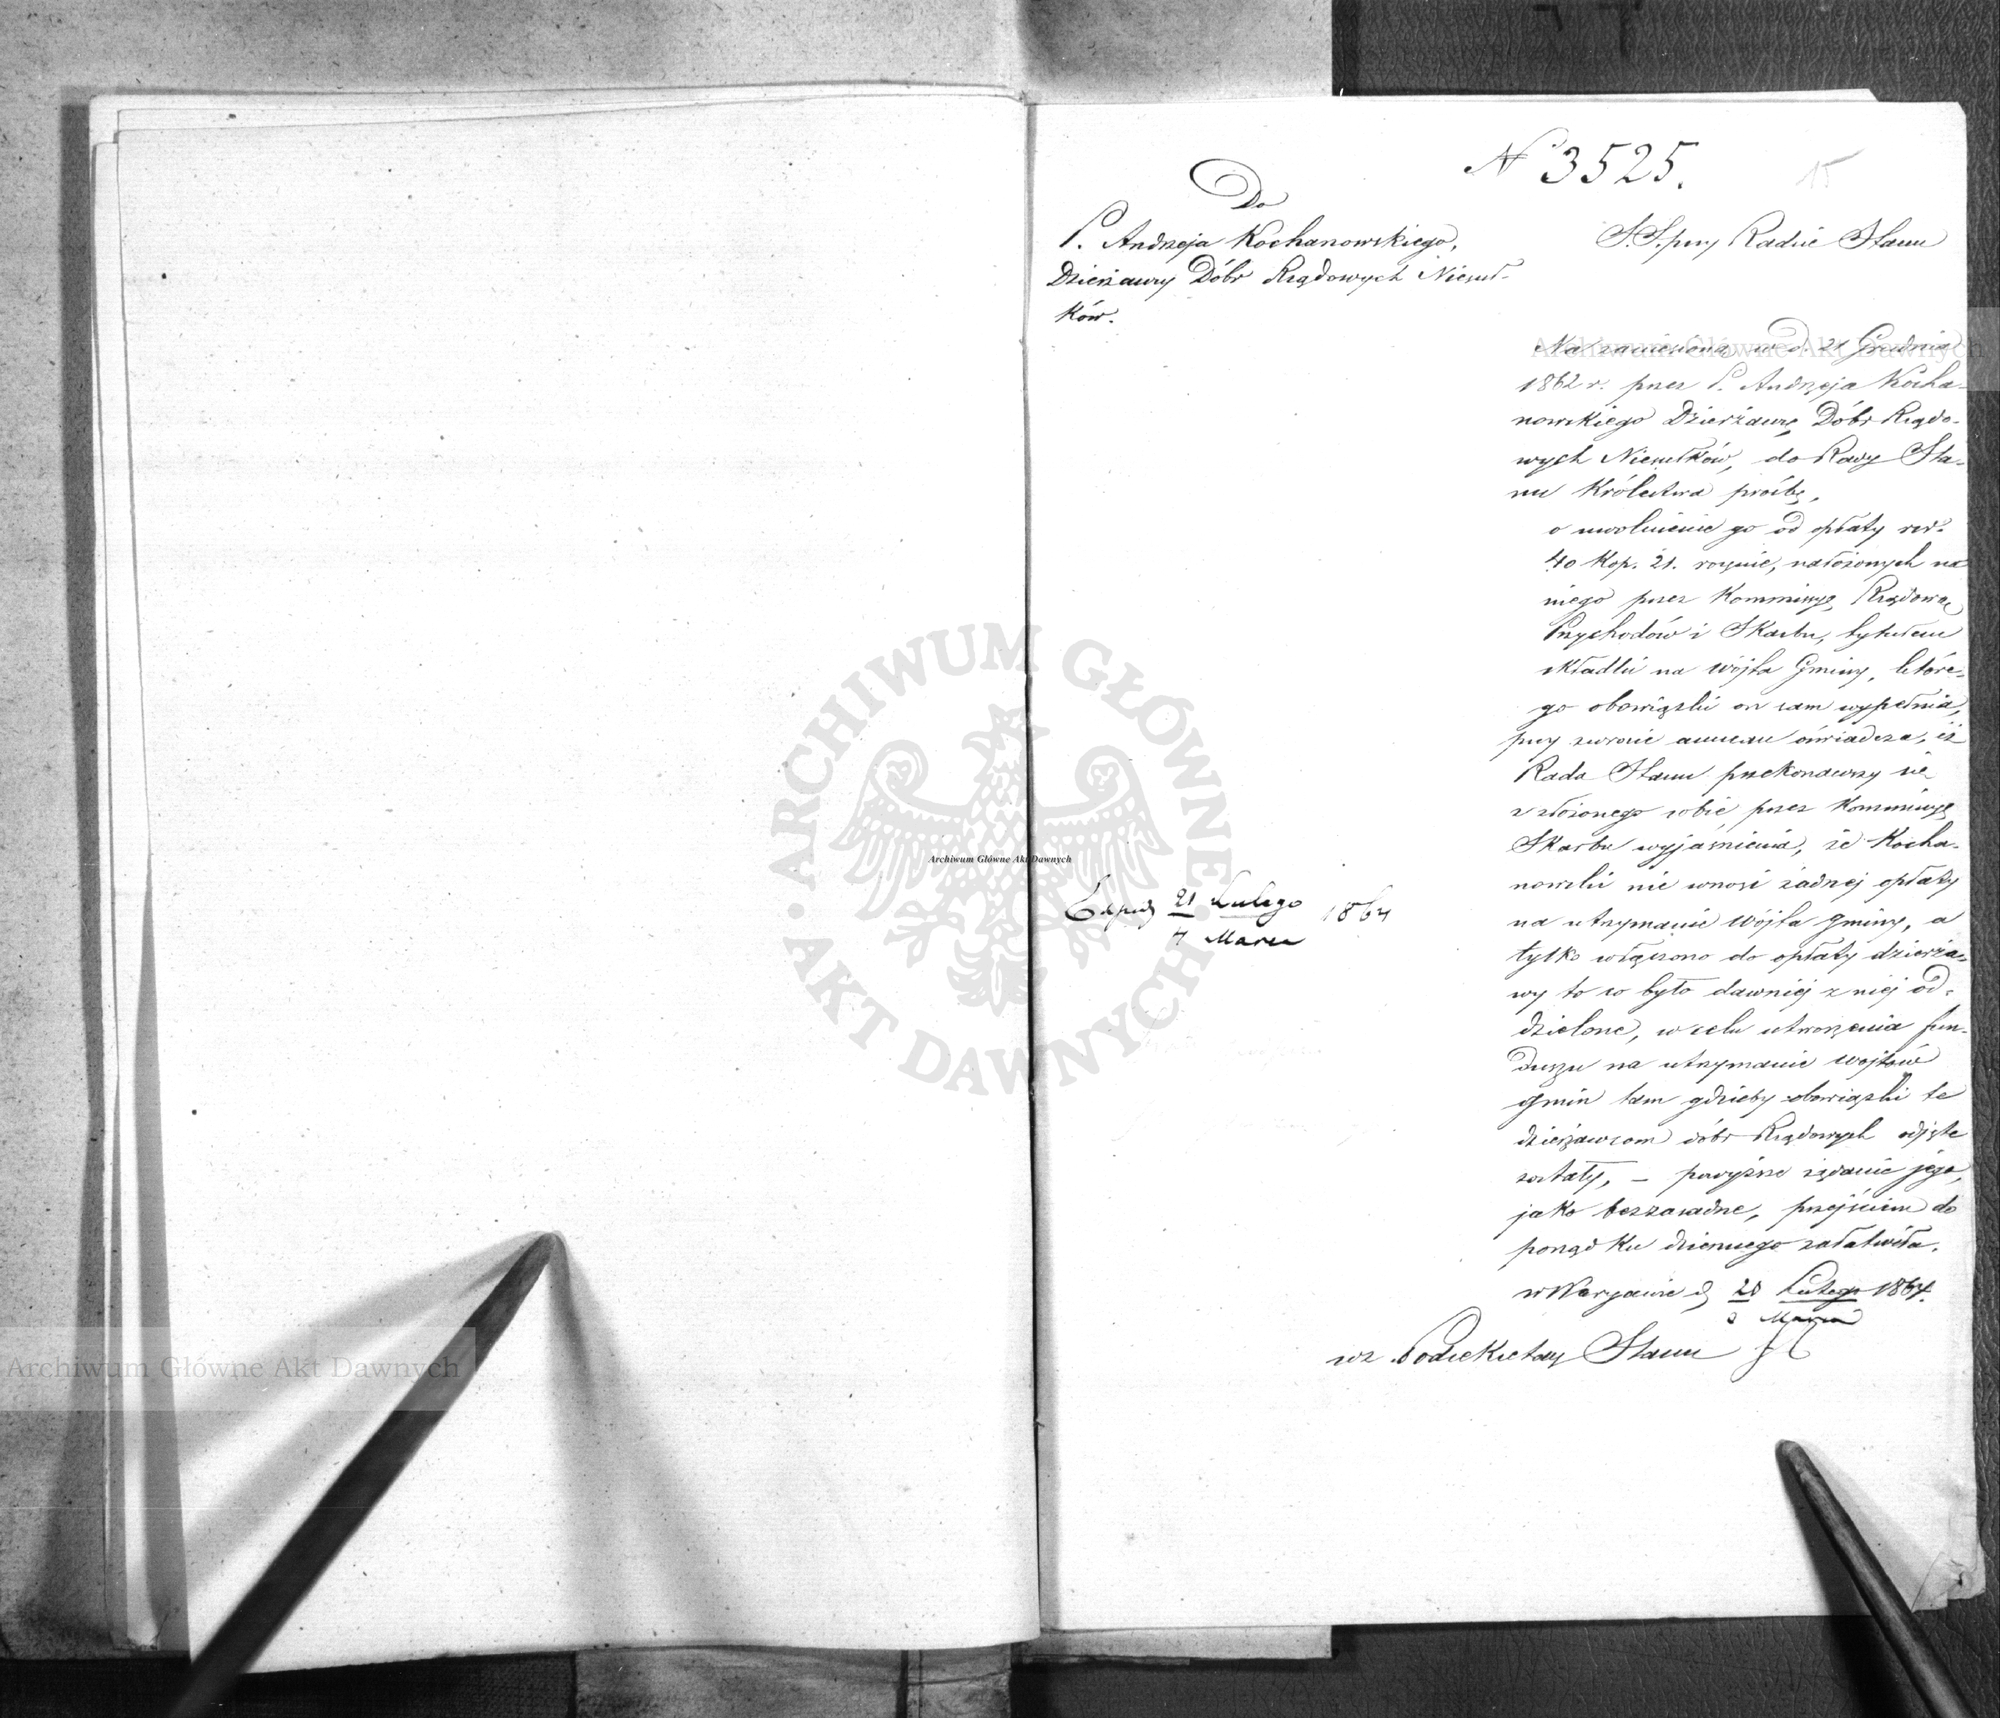 N 3525.
15
Do
P. Andrzeja Kochanowskiego,
Dzierżawcy Dóbr Rządowych Niesuł-
ków.
S. S. przy Radzie Stanu
Na zaniesioną w d. 21 Grudnia
1862 r. przez P. Andrzeja Kocha-
nowskiego Dzierżawcę Dóbr Rządo-
wych Niesułków, do Rady Sta-
nu Królestwa prośbę,
o uwolnienie go od opłaty rsr.
40 kop. 21. rocznie, nałożonych na
niego przez Kommissyę Rządową
Przychodów i Skarbu, tytułem
składki na Wójta Gminy, które-
go obowiązki on sam wypełnia,
przy zwrocie annexu oświadcza, iż
Rada Stanu przekonawszy się
z złożonego sobie przez Kommissyę
Skarbu wyjaśnienia, że Kocha-
nowski nie wnosi żadnej opłaty
na utrzymanie Wójta gminy, a
tylko włączono do opłaty dzierża-
wy to co było dawniej z niej od-
dzielone, w celu utworzenia fun-
duszu na utrzymanie wojtów
gmin tam gdzieby obowiązki te
dzierżawcom dóbr Rządowych odjęte
zostały, – powyższe żądanie jego,
jako bezzasadne, przejściem do
porządku dziennego załatwiła.
w Warszawie d. 20 Lutego 1864.
3 Marca
wz Podsekretarz Stanu
Exped. 21 Lutego 1864
4 Marca
ARCHIWUM GŁÓWNE AKT DAWNYCH
Archiwum Główne Akt Dawnych
Archiwum Główne Akt Dawnych
Archiwum Główne Akt Dawnych